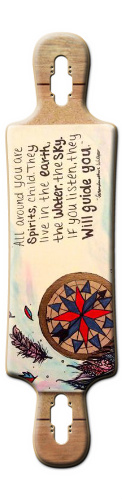 All around you are
Spirits, child. They
live in the earth,
the water, the sky.
If you listen, they
Will guide you.